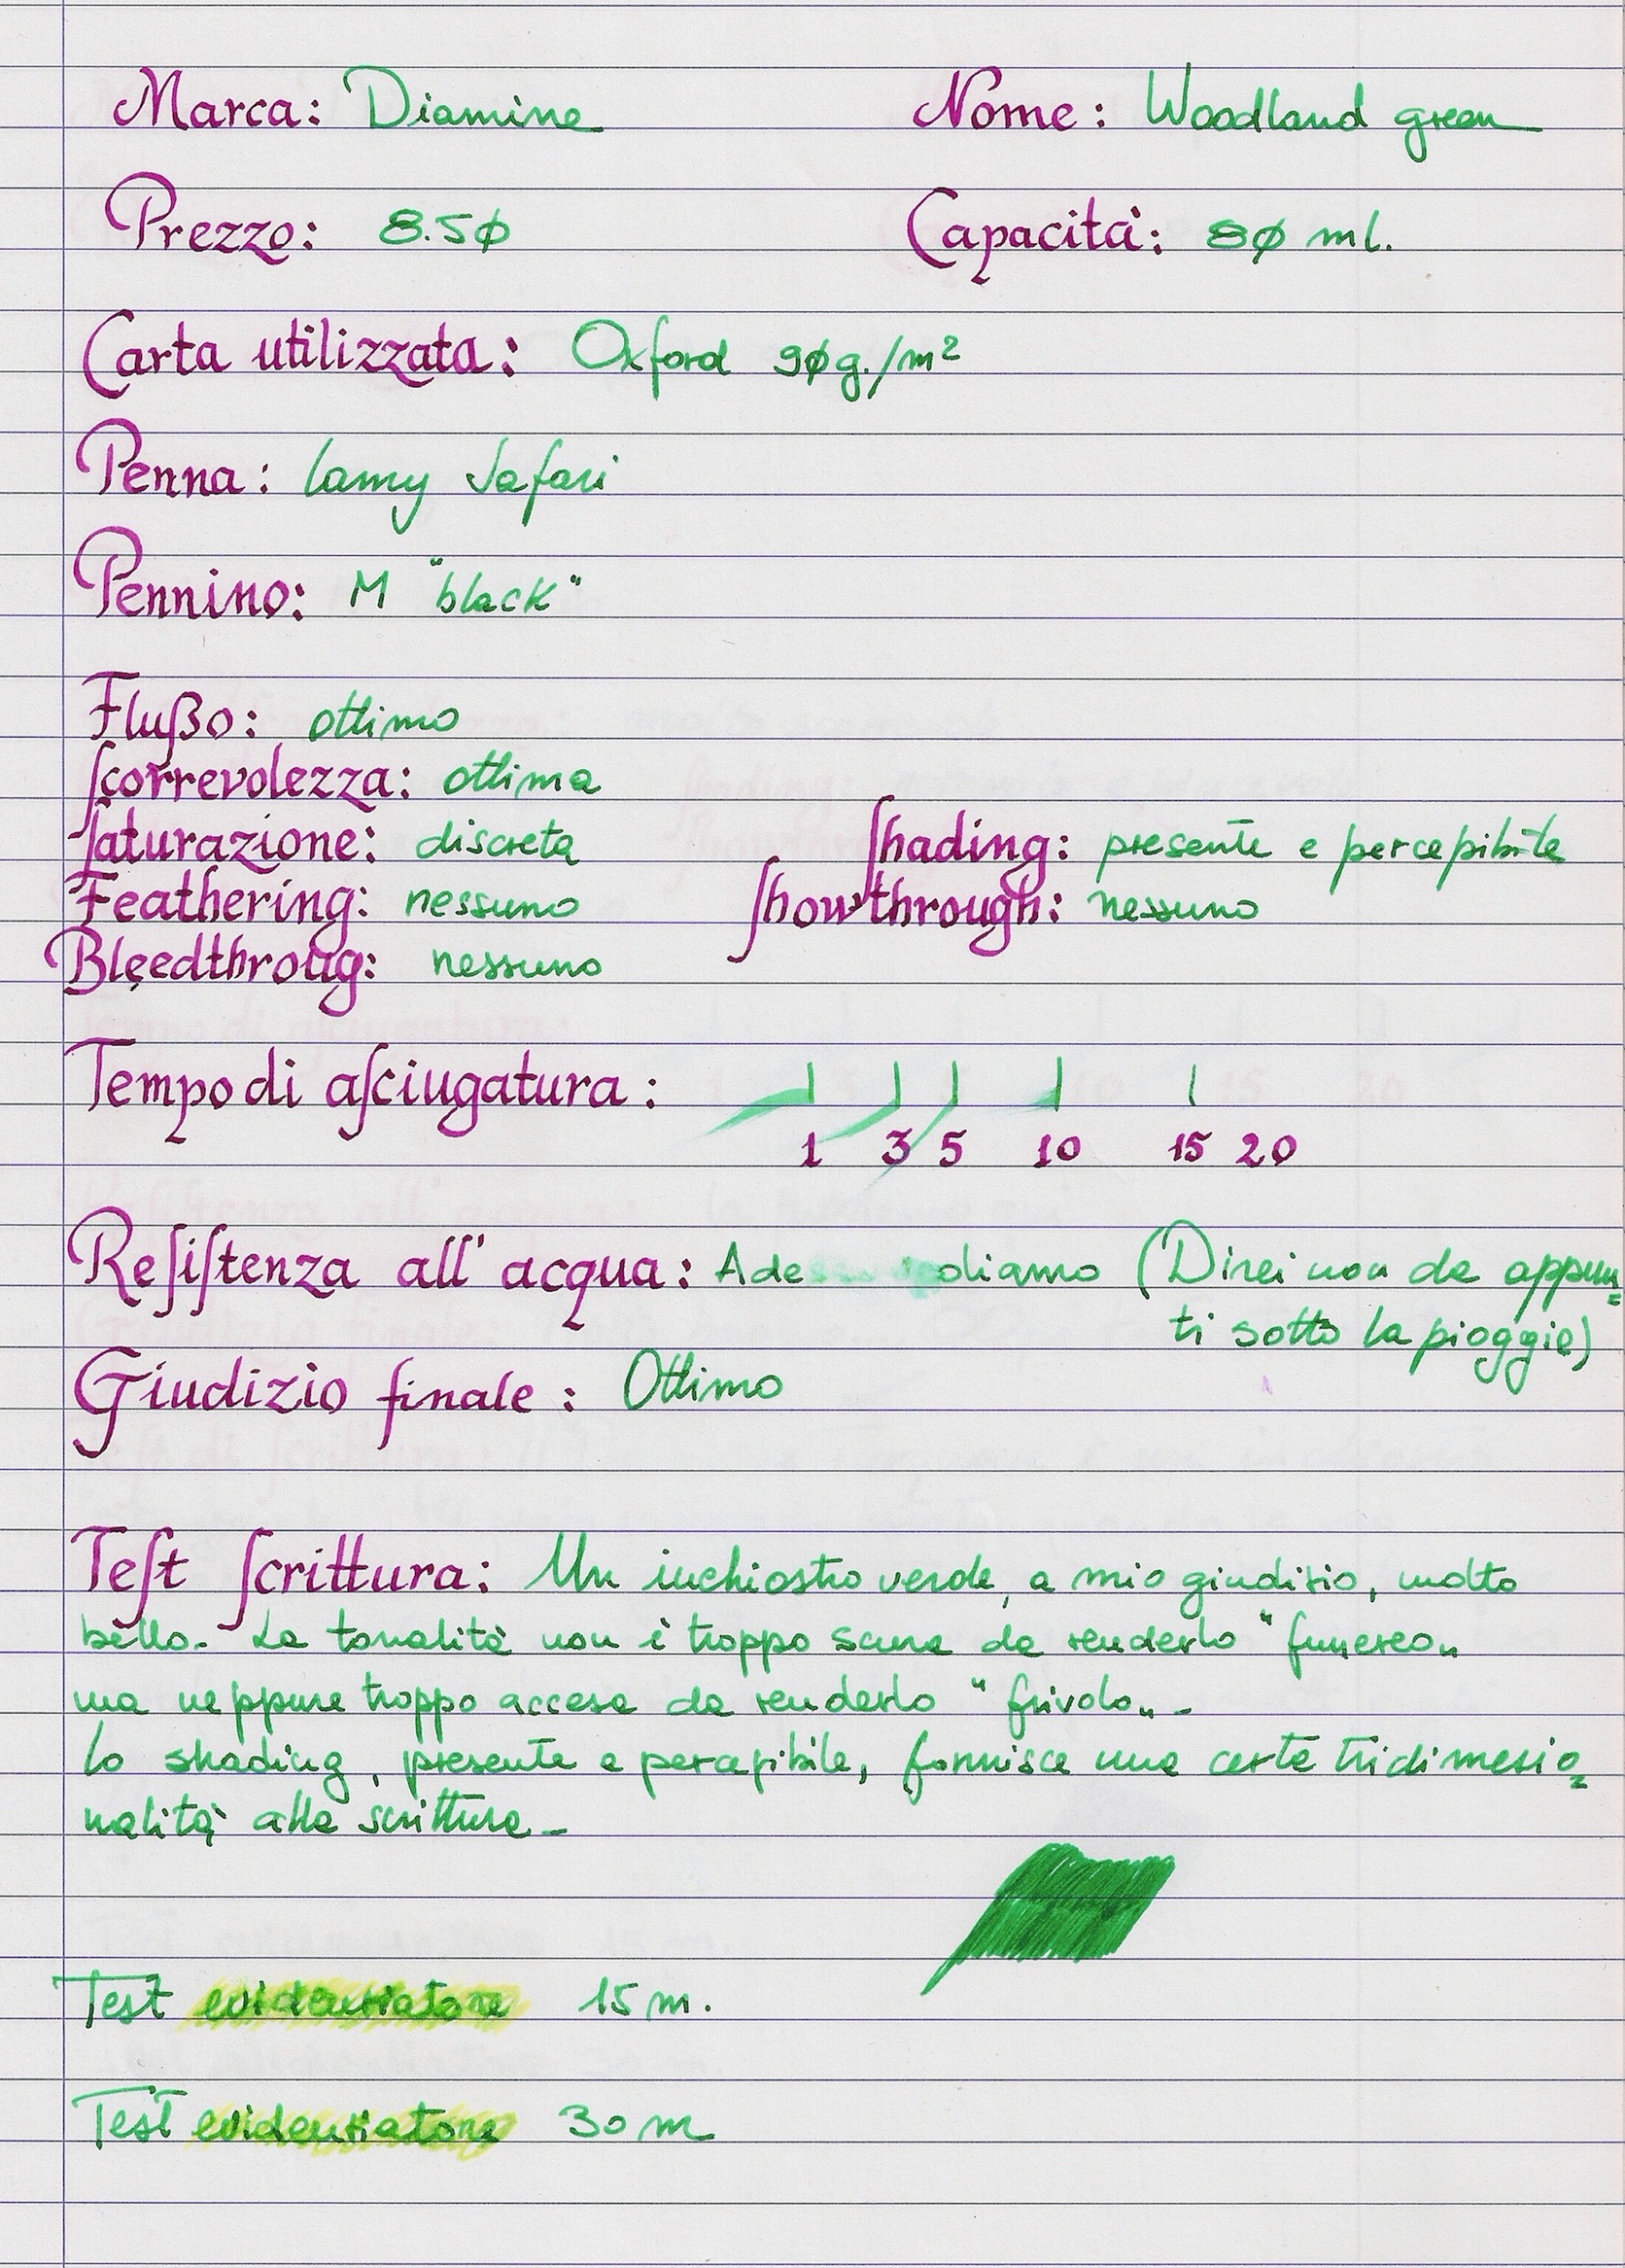 Marca: Diamine Nome: Woodland green
Prezzo: 8.50 Capacità: 80 ml.
Carta utilizzata: Oxford 90g./m²
Penna: Lamy Safari
Pennino: M "black"
Flußo: ottimo
Scorrevolezza: ottima
Saturazione: discreta Shading: presente e percepibile
Feathering: nessuno Showthrough: nessuno
Bleedthroug: nessuno
Tempo di asciugatura:
1 3 5 10 15 20
Resistenza all'acqua: Ade diamo (Direi non da appun=
ti sotto la pioggia)
Giudizio finale: Ottimo
Test Scrittura: Un inchiostro verde, a mio giudizio, molto
bello. La tonalità non è troppo scura da renderlo "funereo"
ma neppure troppo accesa da renderlo "frivolo".
Lo shading, presente e percepibile, fornisce una certa tridimesio=
nalità alla scrittura.
Test evidenziatore 15 m.
Test evidenziatore 30 m